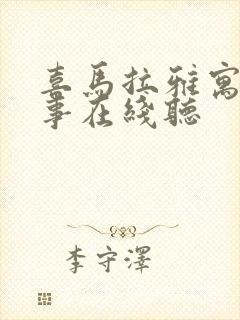 喜馬拉雅寓
事在綫聽
李守澤